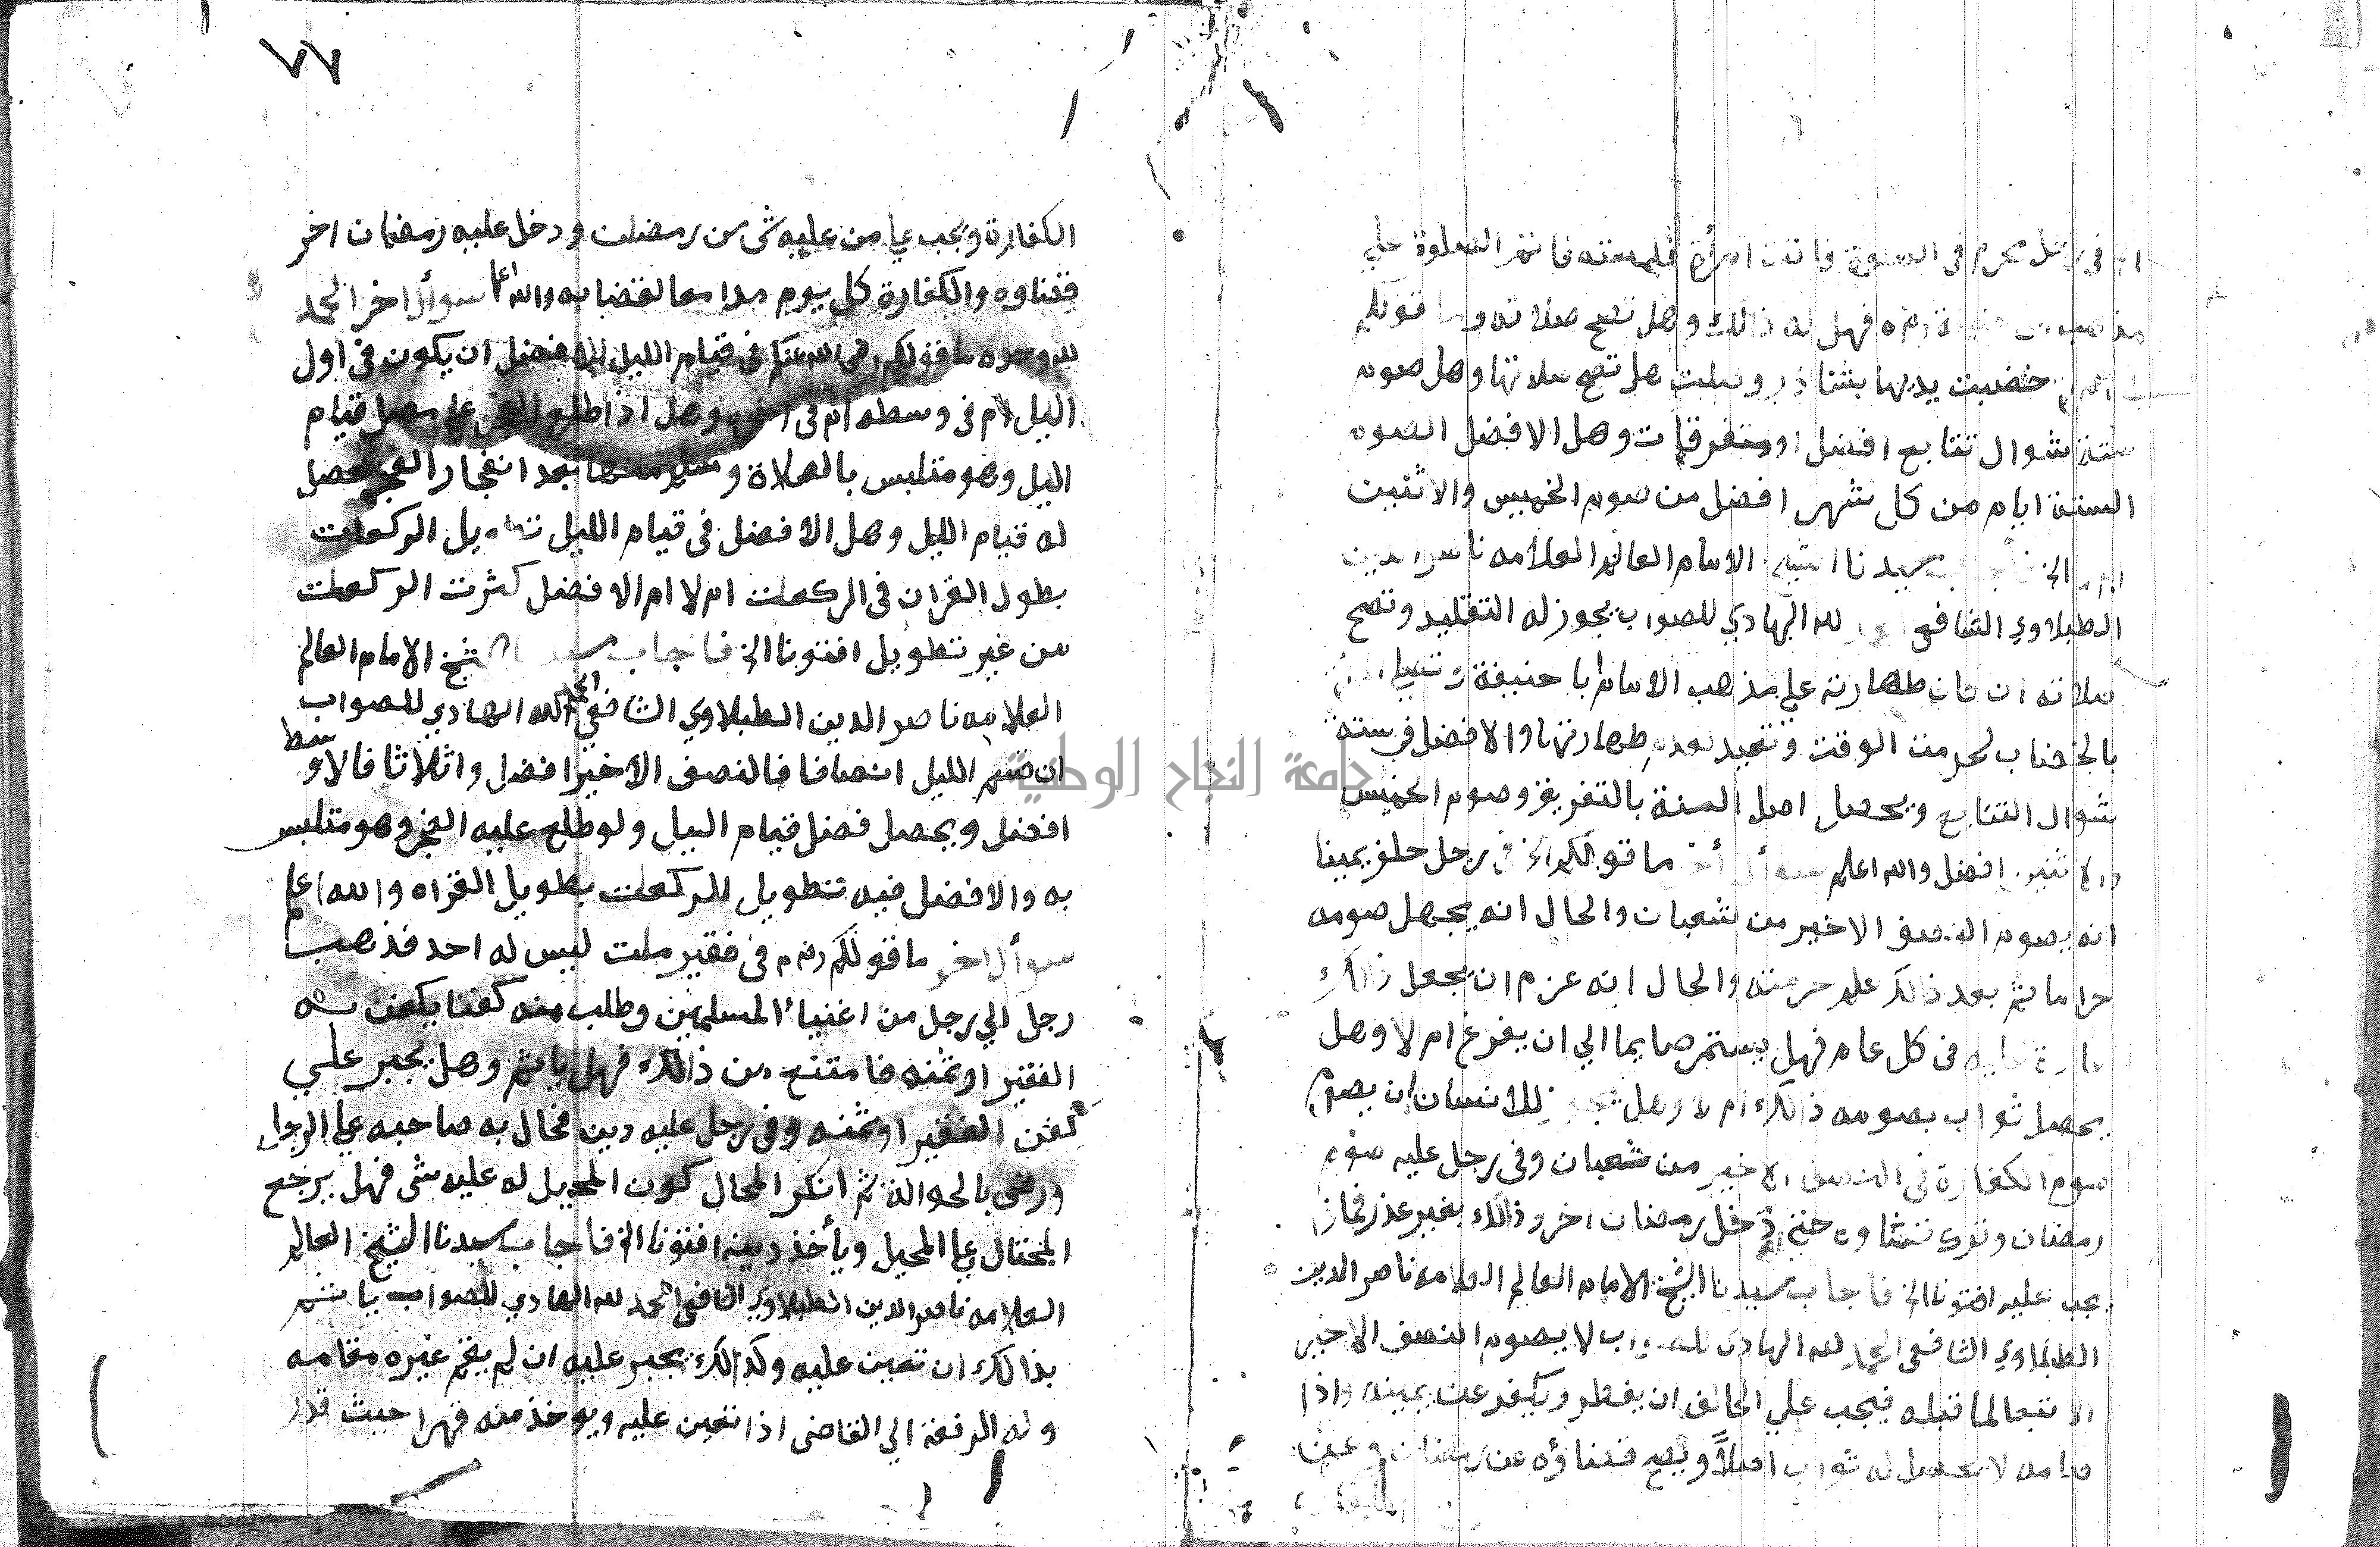 في رجل يحرم في الصلوة فاتت امرأة فلمسته فاتم الصلوة علي
مذهب فهل له ذالك وهل تصح صلاته وما قولكم
خضبت يديها بشنا ذر وصلت هل تصح صلاتها وهل صوم
ستة شوال تتابع افضل او متفرقات وهل الافضل الصوم
الستة ايام من كل شهر افضل من صوم الخميس والاثنين
سيدنا الشيخ الامام العالم العلامه ناصر الدين
الطبلاوي الشافعي لله الهادي للصواب يجوز له التقليد وتصح
صلاته ان كان طهارته علي مذهب الامام ابا حنيفة
بالخضاب لحرمت الوقت وتعيد بعد طهارتها والافضل في ستة
شوال التتابع ويحصل اصل السنة بالتفريق وصوم الخميس
والاثنين افضل والله اعلم سوأل أخر ما قولكم الخ في رجل حلف يمينا
انه يصوم النصف الاخير من شعبان والحال انه يجهل صومه
حراما ثم بعد ذالك علم حرمته والحال انه عزم ان يجعل ذالك
في كل عام فهل يستمر صايما الي ان يفرغ ام لا وهل
يحصل ثواب بصومه ذالك ام لا وهل للانسان ان يصوم
صوم الكفارة في النصف الاخير من شعبان وفي رجل عليه صوم
رمضان وترك حتى دخل رمضان اخر وذالك بغير عذر فماذا
يجب عليه افتونا الخ فاجاب سيدنا الشيخ الامام العالم العلامه ناصر الدين
الطبلاوي الشافعي الحمد لله الهادي للصواب لا يصوم النصف الاخير
الا تبعا لما قبله فيجب علي الحالف ان يفطر ويكفر عن يمينه واذا
صامه لا يحصل له ثواب اصلاً ويصح قضاؤه عن رمضان وعن
٧٧
الكفارة ويجب علي من عليه شي من رمضان ودخل عليه رمضان اخر
قضاوه والكفارة كل يوم مدا مع القضا به والله اعلم سوأل اخر الحمد
لله وحده ما قولكم رضي الله عنكم في قيام الليل الافضل ان يكون في اول
الليل ام في وسطه ام في اخره وهل اذا طلع الفجر علي مصل قيام
الليل وهو متلبس بالصلاة وسلم منها بعد انفجار الفجر يحصل
له قيام الليل وهل الافضل في قيام الليل تطويل الركعات
بطول القران في الركعات ام لا ام الافضل كثرت الركعات
من غير تطويل افتونا الخ فاجاب سيدنا الشيخ الامام العالم
العلامه ناصر الدين الطبلاوي الشافعي الحمد لله الهادي للصواب
ان قسم الليل انصافا فالنصف الاخير افضل واثلاثا فالاوسط
افضل ويحصل فضل قيام الليل ولو طلع عليه الفجر وهو متلبس
به والافضل فيه تطويل الركعات بطويل القراه والله اعلم
سوأل اخر ما قولكم رضم في فقير مات ليس له احد فذهب
رجل الي رجل من اغنياء المسلمين وطلب منه كفنا يكفن به
الفقير او ثمنه فامتنع من ذالك فهل ياثم وهل يجبر علي
كفن الفقير او ثمنه وفي رجل عليه دين فحال به صاحبه علي الرجل
ورضي بالحوالة ثم انكر المحال كون المحيل له عليه شي فهل يرجع
المحتال علي المحيل ويأخذ دينه افتونا الخ فاجاب سيدنا الشيخ العالم
العلامه ناصر الدين الطبلاوي الشافعي الحمد لله الهادي للصواب ياثم
بذالك ان تعين عليه وكذالك يجبر عليه ان لم يقم غيره مقامه
وله الرفعة الي القاضي اذا تعين عليه ويوخذ منه قهرا حيث قدر
جامعة النجاح الوطنية